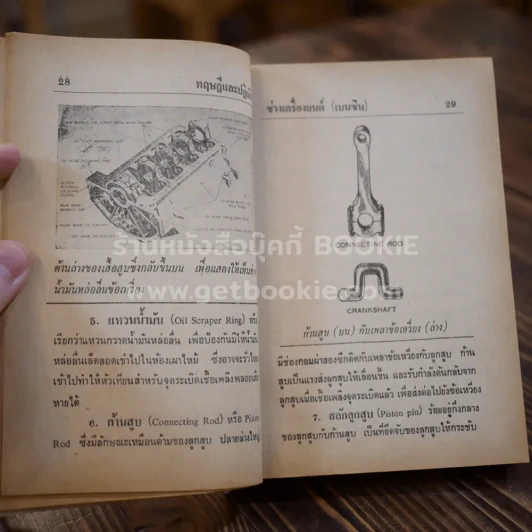 28
ทฤษฎีและปฏิบั
ด้านล่างของเสื้อสูบซึ่งกลับขึ้นบน เพื่อแสดงให้เห็น
น้ำมันหล่อลื่นข้อเหวี่ยง
๕. แหวนน้ำมัน (Oil Scraper Ring)
เรียกว่าแหวนกวาดน้ำมันหล่อลื่น เพื่อป้องกันมิให้น้ำมัน
หล่อลื่นเล็ดลอดเข้าไปในห้องเผาไหม้ ซึ่งอาจจะรั่วไหล
เข้าไปทำให้หัวเทียนสำหรับจุดระเบิดเชื้อเพลิงพลอย
หายได้
๖. ก้านสูบ (Connecting Rod) หรือ Piston
Rod ซึ่งมีลักษณะเหมือนด้ามของลูกสูบ ปลายล่างใหญ่
ช่างเครื่องยนต์ (เบนซิน)
29
CONNECTING ROD
CRANKSHAFT
ก้านสูบ (บน) กับเพลาข้อเหวี่ยง (ล่าง)
มีช่องกลมผ่าสองซีกติดกับเพลาข้อเหวี่ยงกับลูกสูบ ก้าน
สูบเป็นแรงส่งลูกสูบให้เลื่อนขึ้น และรับกำลังดันกลับจาก
ลูกสูบเมื่อเชื้อเพลิงจุดระเบิดแล้ว เพื่อส่งต่อไปยังข้อเหวี่ยง
7. สลักลูกสูบ (Piston pin) ร้อยอยู่กึ่งกลาง
ของลูกสูบกับก้านสูบ เป็นที่ยึดจับของลูกสูบให้กระชับ
ร้านหนังสือบุ๊คกี้ BOOKIE
www.getbookie.com